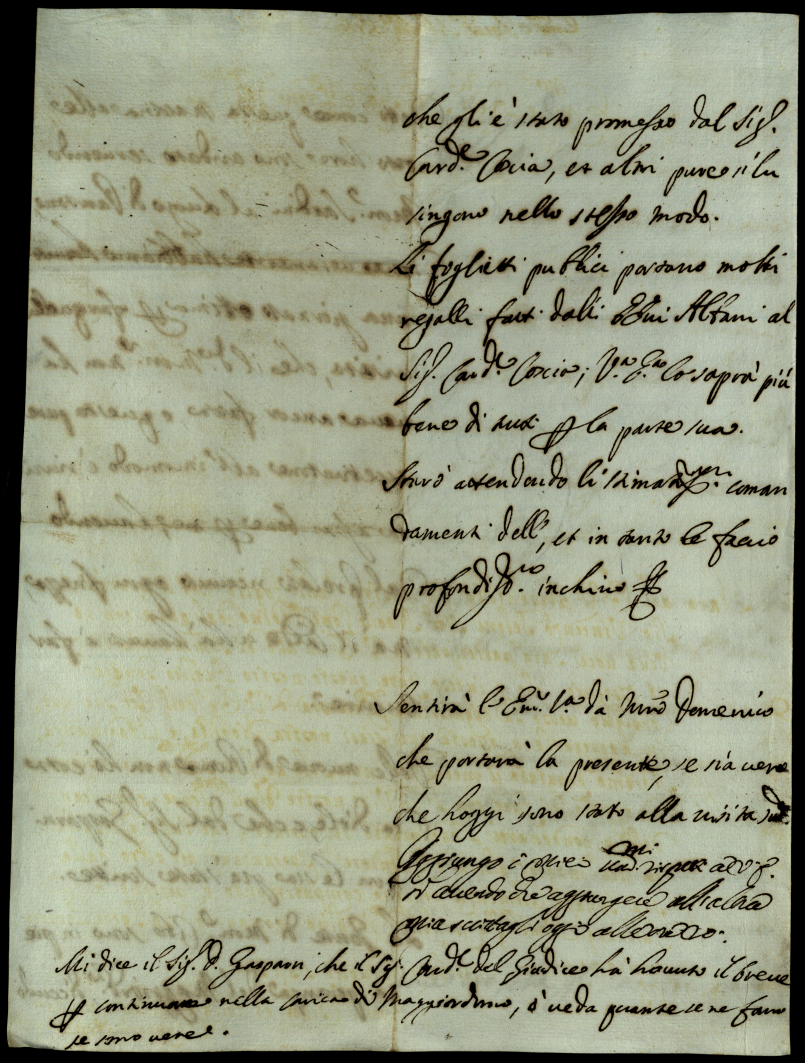 che gli è stato promesso dal Sig.r
Card.le Coscia, et altri pure si lu
singono nello stesso modo.
Li foglietti publici portano molti
regalli fatti dalli Albani al
Sig.r Card.le Coscia; V.ra Em.za lo saprà più
bene di tutti la parte sua.
Starò attendendo li stimatiss.mi coman
damenti dell', et in tanto le faccio
profondiss.mo inchino
Sentirà l'Em.za V.ra dà Domenico
che portarà la presente, se sia vero
che hoggi sono stato alla visita
Aggiungo i
havendo che aggiungere all'altra
mia
Mi dice il Sig.r D. Gasparri, che il Sig.r Card.le del Giudice hà havuto il breve
continuare nella carica di Maggiordomo, si veda quante se ne fano
se sono vere.